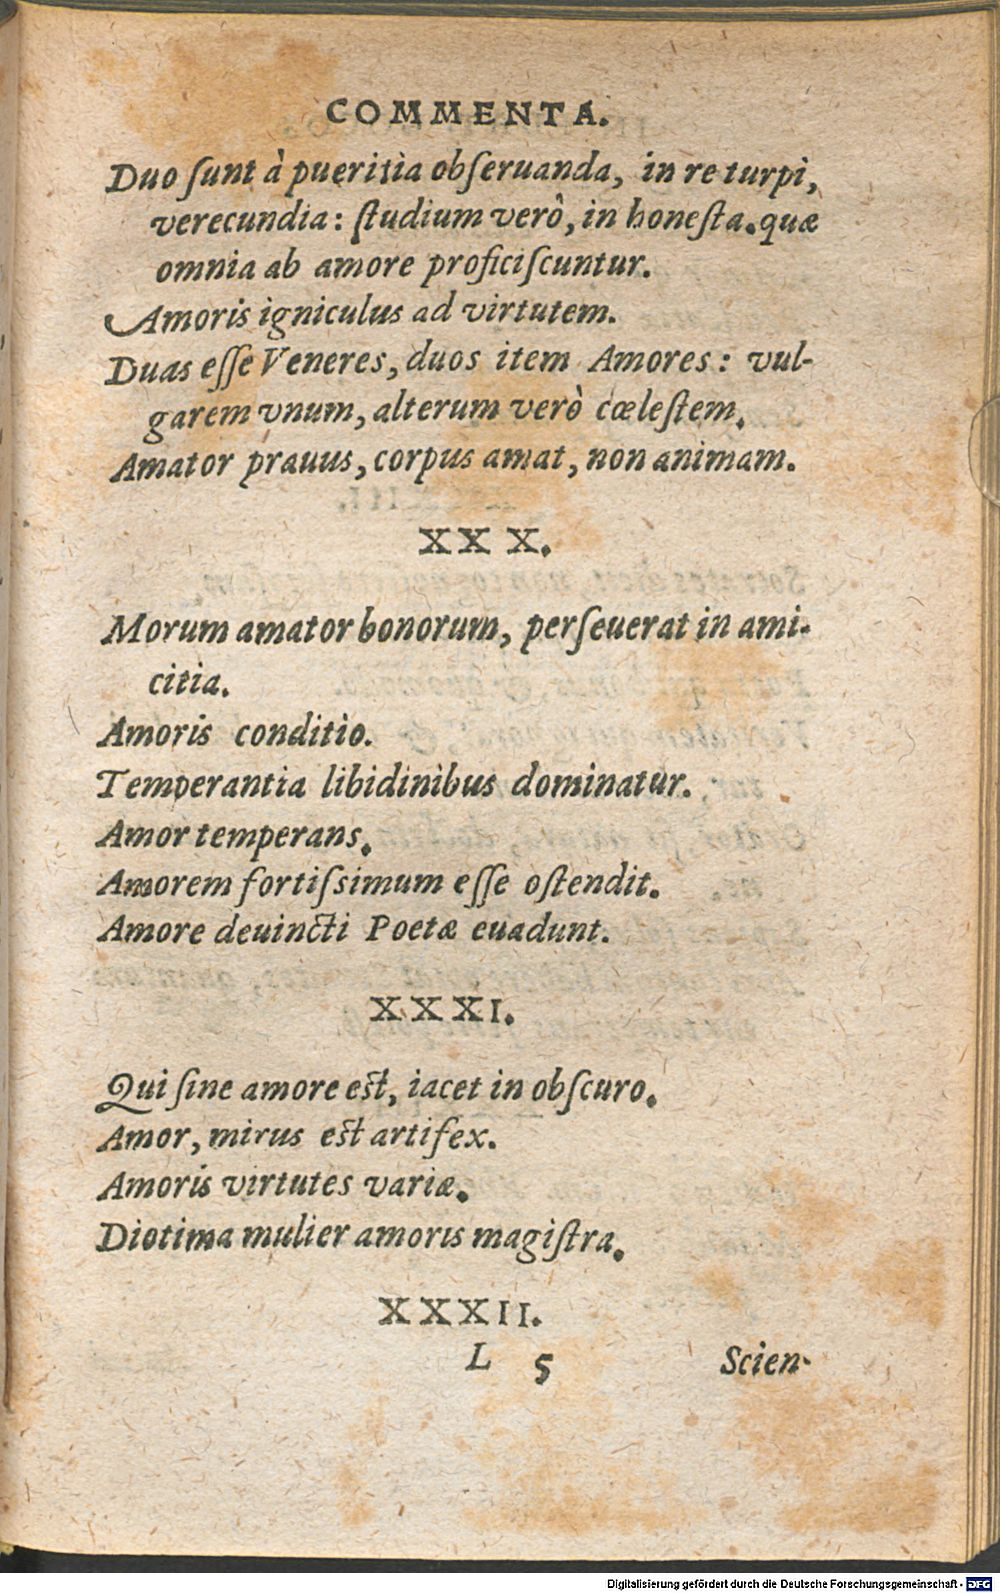 COMMENTA.
Duo ſunt à pueritia obſeruanda, in re turpi,
verecundia: ſtudium verò, in honeſta. quæ
omnia ab amore proficiſcuntur.
Amoris igniculus ad virtutem.
Duas eſſe Veneres, duos item Amores: vul-
garem vnum, alterum verò cœleſtem.
Amator prauus, corpus amat, non animam.
XXX.
Morum amator bonorum, perſeuerat in ami-
citia.
Amoris conditio.
Temperantia libidinibus dominatur.
Amor temperans.
Amorem fortiſsimum eſſe oſtendit.
Amore deuincti Poetæ euadunt.
XXXI.
Qui ſine amore est, iacet in obſcuro.
Amor, mirus est artifex.
Amoris virtutes variæ.
Diotima mulier amoris magiſtra.
XXXII.
L 5 Scien-
Digitalisierung gefördert durch die Deutsche Forschungsgemeinschaft - DFG